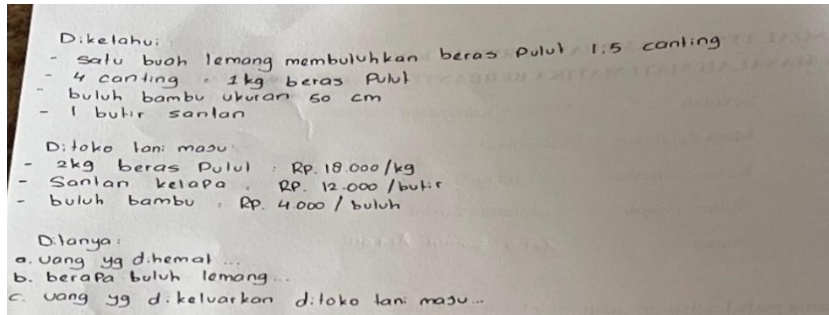 Diketahui:
- satu buah lemang membutuhkan beras pulut 1,5 canting
- 4 canting = 1 kg beras pulut
- buluh bambu ukuran 50 cm
- 1 butir santan
Di toko tani maju:
- 2kg beras pulut : RP. 18.000/kg
- Santan kelapa : RP. 12.000 /butir
- buluh bambu : RP. 4.000 / buluh
Ditanya:
a. uang yg dihemat ...
b. berapa buluh lemang ...
c. uang yg dikeluarkan di toko tani maju ...